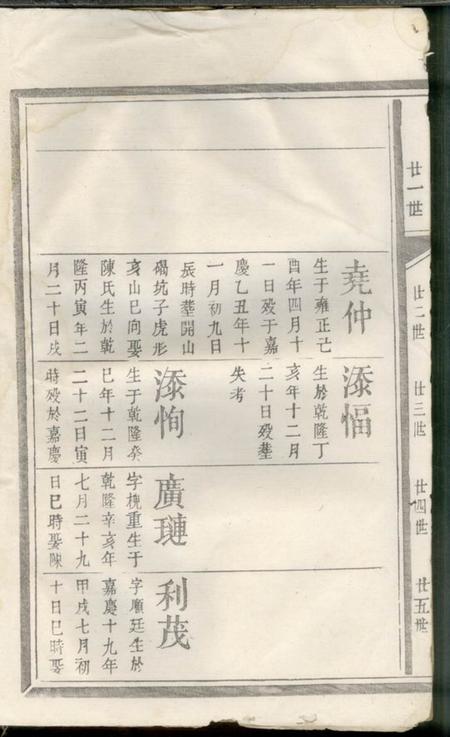 廿一世
廿二世
廿三世
廿四世
廿五世
堯仲
生于雍正己
酉年四月十
一日殁于嘉
慶乙丑年十
一月初九日
辰時塟開山
碣坑子虎形
亥山巳向娶
陳氏生於乾
隆丙寅年二
月二十日戌
添愊
生於乾隆丁
亥年十二月
二十日殁塟
失考
添恂
生于乾隆癸
巳年十二月
二十二日寅
時殁於嘉慶
廣璉
字槐重生于
乾隆辛亥年
七月二十九
日巳時娶陳
利茂
字順廷生於
嘉慶十九年
甲戌七月初
十日巳時娶